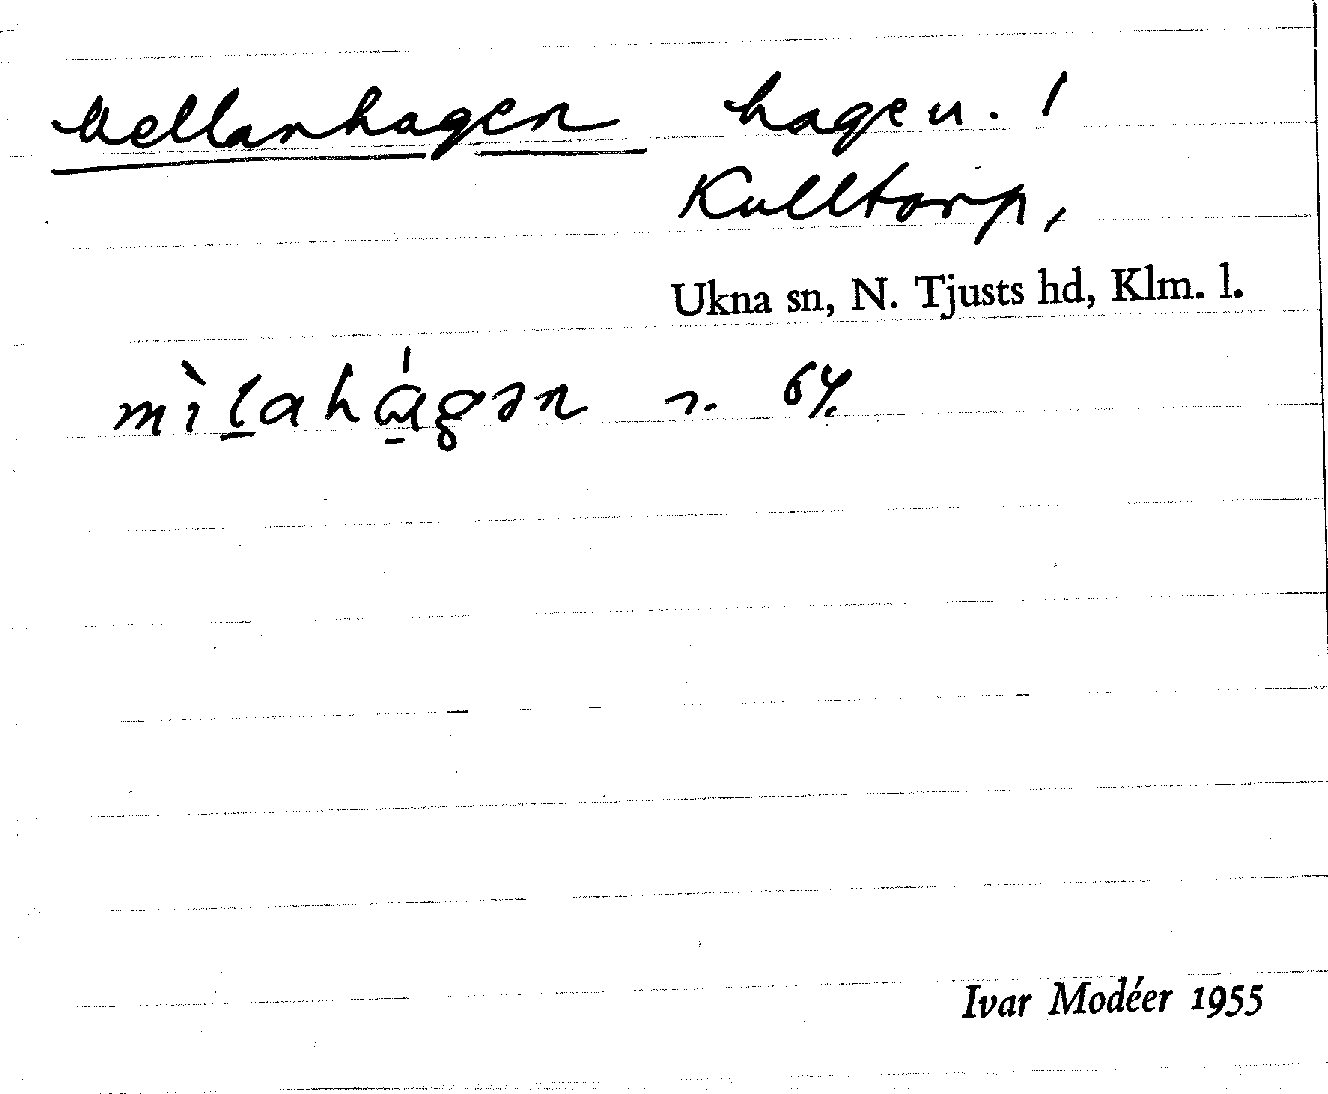 Mellanhagen hagen. !
Kulltorp,
Ukna sn, N. Tjusts hd, Klm. l.
mìlahágən 64.
Ivar Modéer 1955